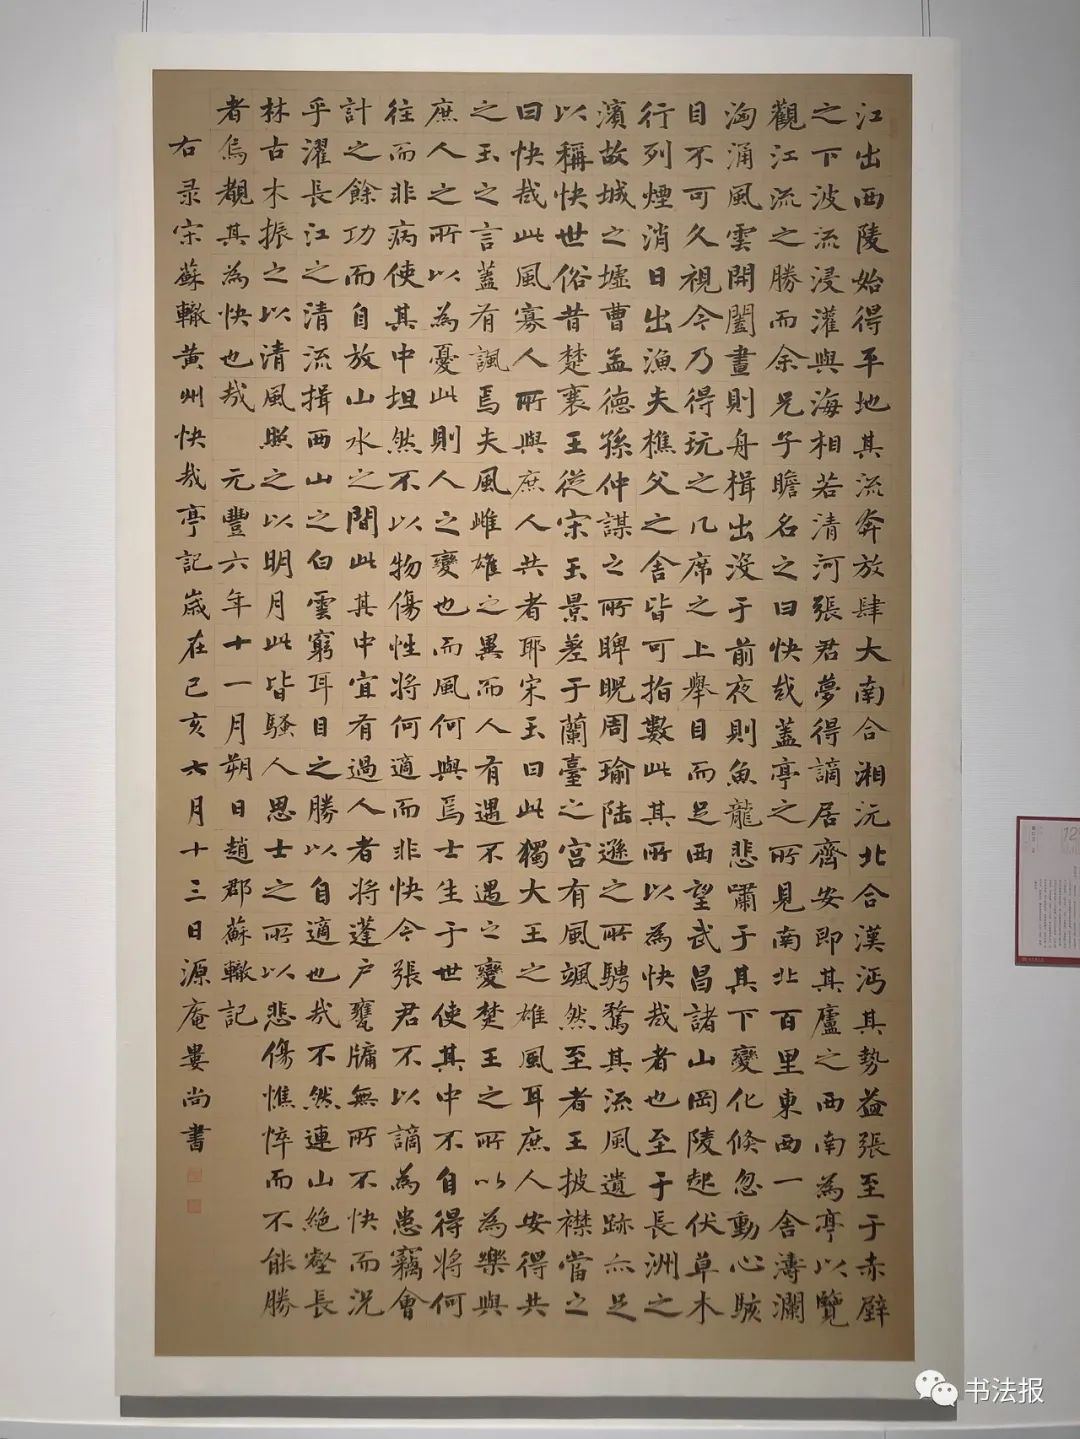 江出西陵始得平地其流奔放肆大南合湘沅北合漢沔其勢益張至于赤壁
之下波流浸灌與海相若清河張君夢得謫居齊安即其廬之西南為亭以覽
觀江流之勝而余兄子瞻名之曰快哉蓋亭之所見南北百里東西一舍濤瀾
洶涌風雲開闔晝則舟楫出没于前夜則魚龍悲嘯于其下變化倏忽動心駭
目不可久視今乃得玩之几席之上舉目而足西望武昌諸山岡陵起伏草木
行列煙消日出漁夫樵父之舍皆可指數此其所以為快哉者也至于長洲之
濱故城之墟曹孟德孫仲謀之所睥睨周瑜陸遜之所騁騖其流風遺跡亦足
以稱快世俗昔楚襄王從宋玉景差于蘭臺之宮有風颯然至者王披襟當之
曰快哉此風寡人所與庶人共者耶宋玉曰此獨大王之雄風耳庶人安得共
之玉之言蓋有諷焉夫風雌雄之異而人有遇不遇之變楚王之所以為樂與
庶人之所以為憂此則人之變也而風何與焉士生于世使其中不自得將何
往而非病使其中坦然不以物傷性將何適而非快今張君不以謫為患竊會
計之餘功而自放山水之間此其中宜有過人者將蓬户甕牖無所不快而況
乎濯長江之清流揖西山之白雲窮耳目之勝以自適也哉不然連山絶壑長
林古木振之以清風照之以明月此皆騷人思士之所以悲傷憔悴而不能勝
者烏覩其為快也哉 元豐六年十一月朔日趙郡蘇轍記
右录宋蘇轍黄州快哉亭記歲在己亥六月十三日源庵婁尚書
书法报